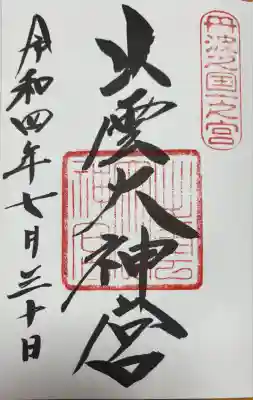 丹波国一之宮
出雲大神宮
令和四年七月三十日